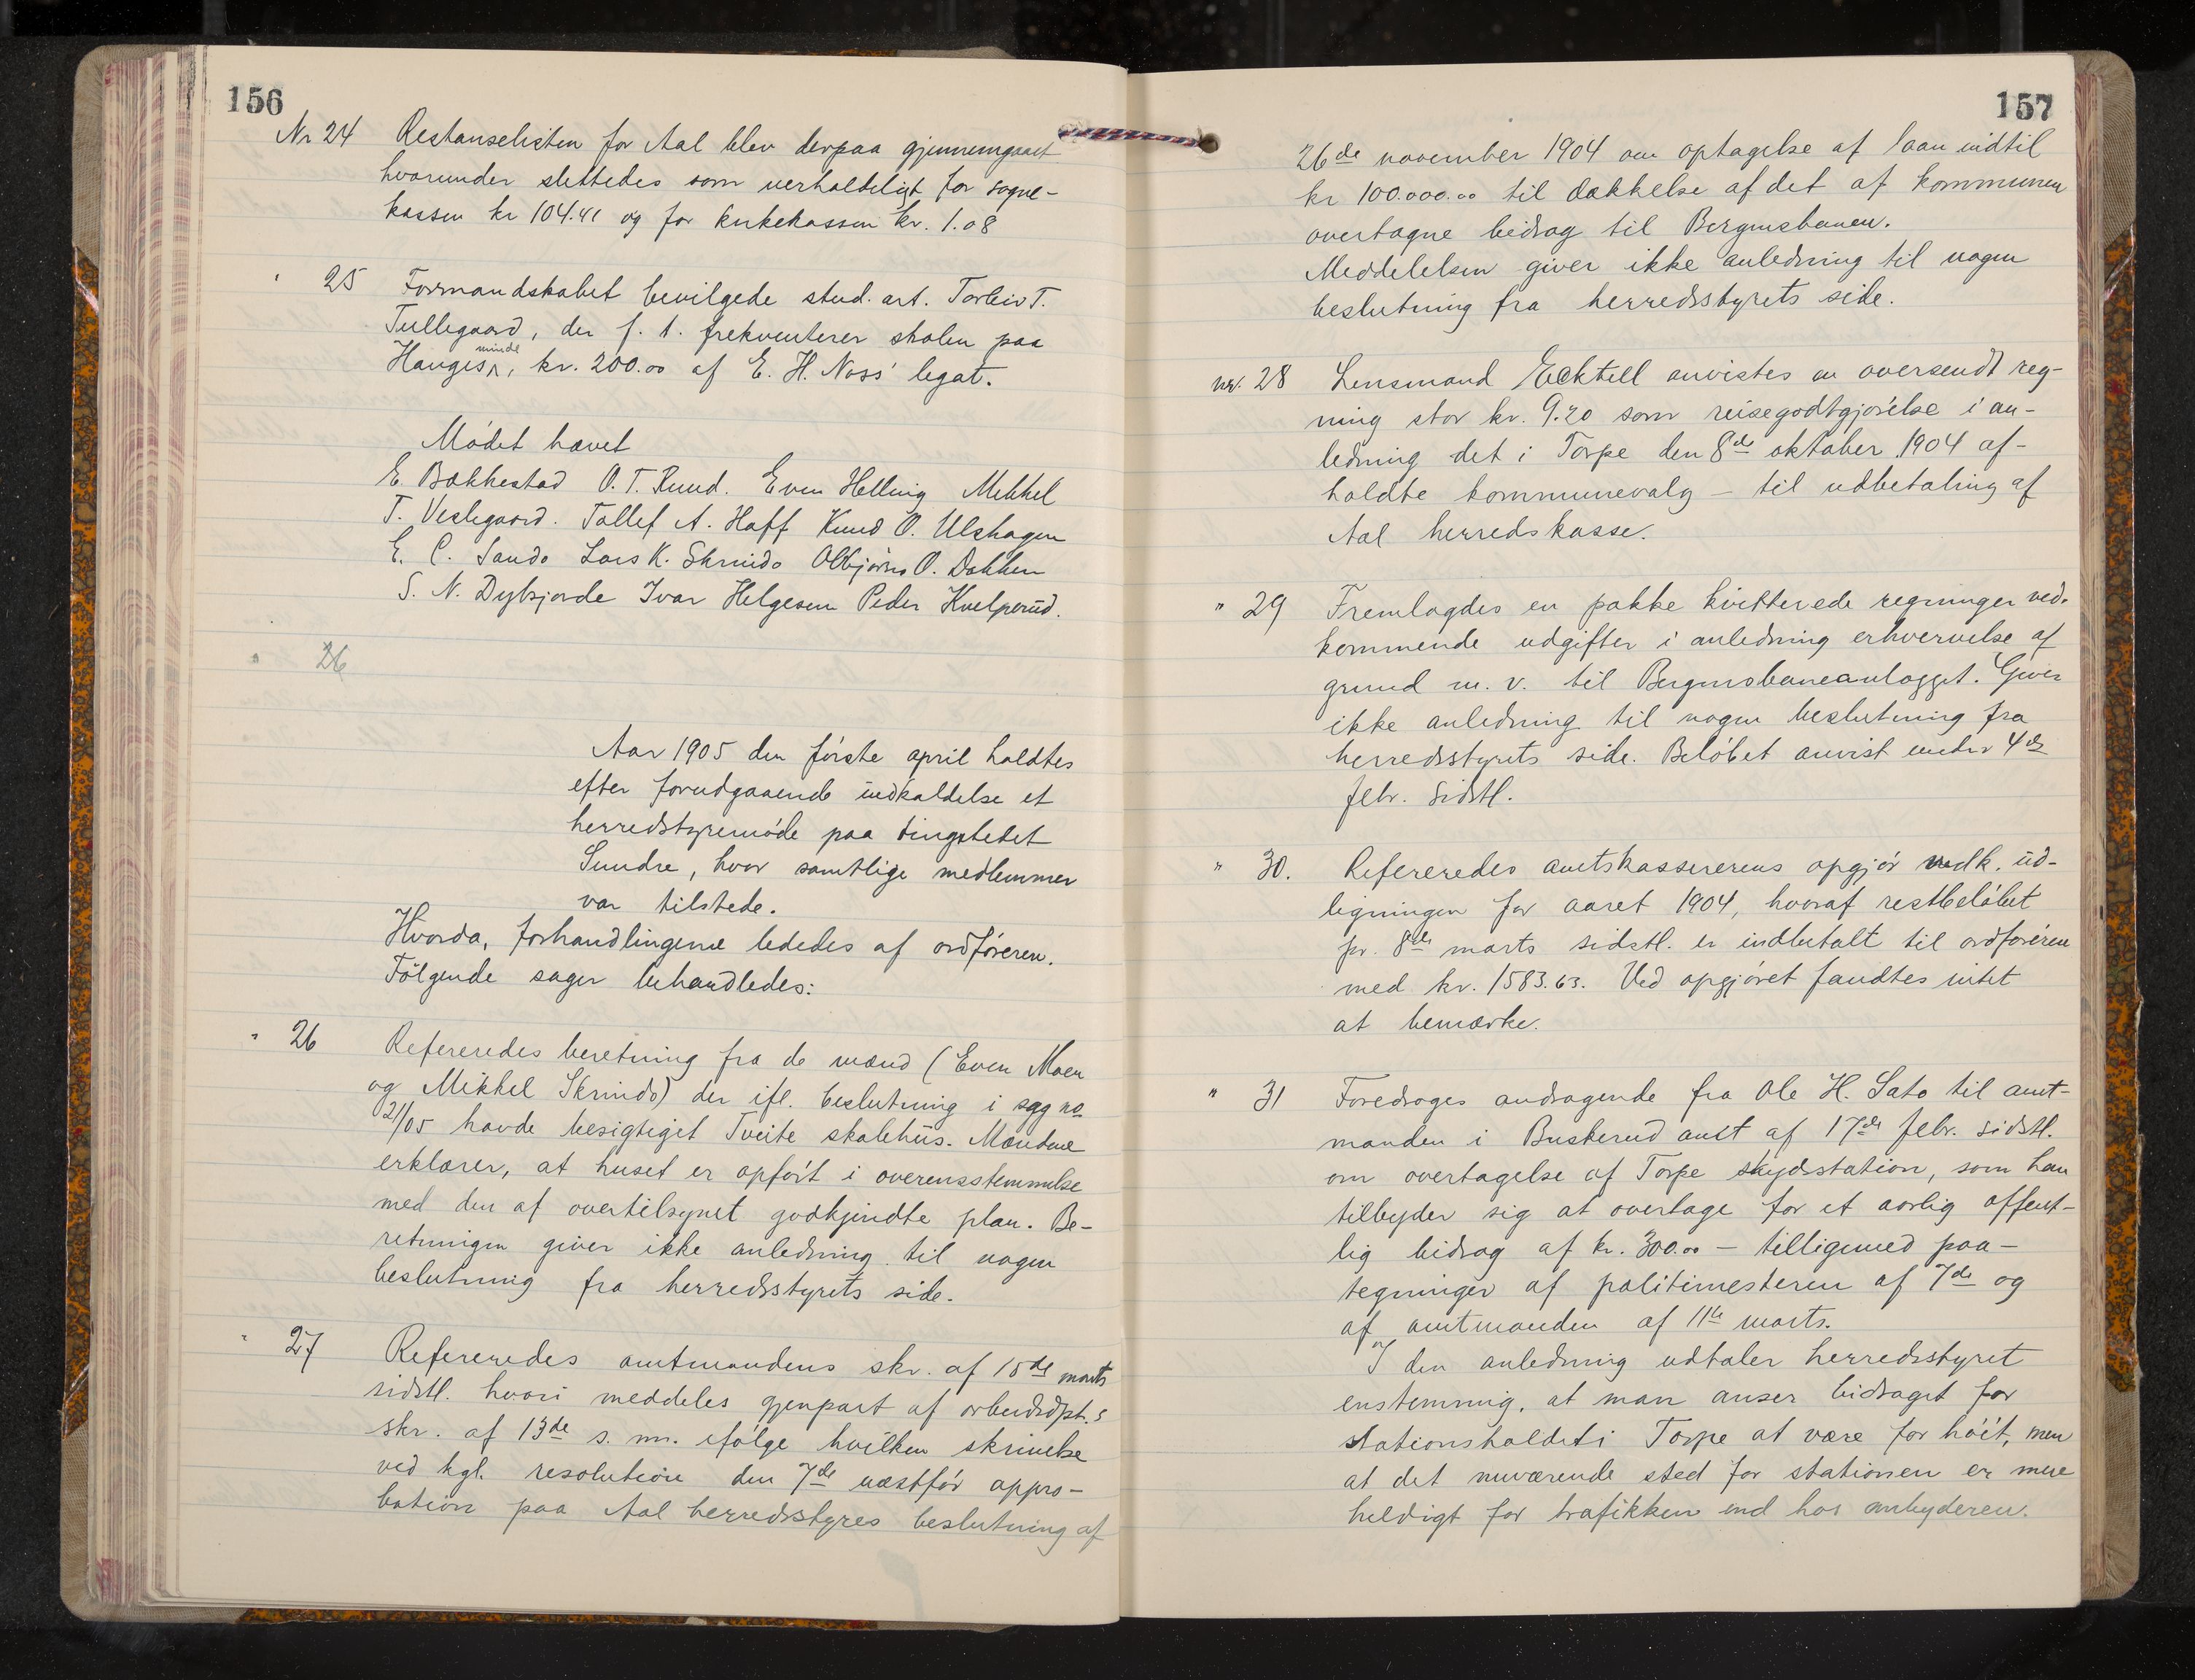 156
Nr 24 Restanselisten for Aal blev derpaa gjennemgaaet
hvorunder slettedes som uerholdeligt for sogne-
kassen kr 104.41 og for kirkekassen kr. 1.08
" 25 Formandskabet bevilgede stud. art. Torleiv T.
Tullegaard, der f. t. frekventerer skolen paa
Hauges minde, kr. 200.00 af E. H. Noss' legat.
Mödet hævet
E. Bakkestad O. T. Ruud. Even Helling Mikkel
T. Veslegaard. Tollef A. Haff Knud O. Ulshagen
E. C. Sando Lars K. Skrindo Olbjørn O. Dokken
S. N. Dybsjorde Ivar Helgesen Peder Kvelprud.
" 26
Aar 1905 den förste april holdtes
efter forudgaaende indkaldelse et
herredstyremöde paa tingstedet
Sundre, hvor samtlige medlemmer
var tilstede.
Hvorda, forhandlingerne lededes af ordföreren.
Fölgende sager behandledes:
" 26 Refereredes beretning fra de mænd (Even Moen
og Mikkel Skrindo) der ifl. beslutning i sag no
21/05 havde besigtiget Tveite skolehus. Mændene
erklærer, at huset er opfört i overensstemmelse
med den af overtilsynet godkjendte plan. Be-
retningen giver ikke anledning til nogen
beslutning fra herredsstyrets side.
" 27 Refereredes amtmandens skr. af 15de marts
sidstl. hvori meddeles gjenpart af arbeidsdpt.s
skr. af 13de s. m. ifölge hvilken skrivelse
ved kgl. resolution den 7de næstför appro-
bation paa Aal herredsstyres beslutning af
157
26de november 1904 om optagelse af laan indtil
kr 100.000.00 til dækkelse af det af kommunen
overtagne bidrag til Bergensbanen.
Meddelelsen giver ikke anledning til nogen
beslutning fra herredsstyrets side.
nr. 28 Lensmand Eektell anvistes en oversendt reg-
ning stor kr. 9.20 som reisegodtgjörelse i an-
ledning det i Torpe den 8de oktober 1904 af-
holdte kommunevalg – til udbetaling af
Aal herredskasse.
" 29 Fremlagdes en pakke kvitterede regninger ved-
kommende udgifter i anledning erhvervelse af
grund m. v. til Bergensbaneanlægget. Giver
ikke anledning til nogen beslutning fra
herredsstyrets side. Belöbet anvist under 4de
febr. sidstl.
" 30. Refereredes amtskassererens opgjör vedk. ud-
ligningen for aaret 1904, hvoraf restbelöbet
pr. 8de marts sidstl. er indbetalt til ordföreren
med kr. 1583.63. Ved opgjöret fandtes intet
at bemærke.
" 31 Foredroges andragende fra Ole H. Sato til amt-
manden i Buskerud amt af 17de febr. sidstl.
om overtagelse af Torpe skydsstation, som han
tilbyder sig at overtage for et aarlig offent-
lig bidrag af kr. 300.00 – tilligemed paa-
tegninger af politimesteren af 7de og
af amtmanden af 11te marts.
I den anledning udtaler herredsstyret
enstemmig, at man anser bidraget for
stationsholdet i Torpe at være for höit, men
at det nuværende sted for stationen er mere
heldigt for trafikken end hos anbyderen.